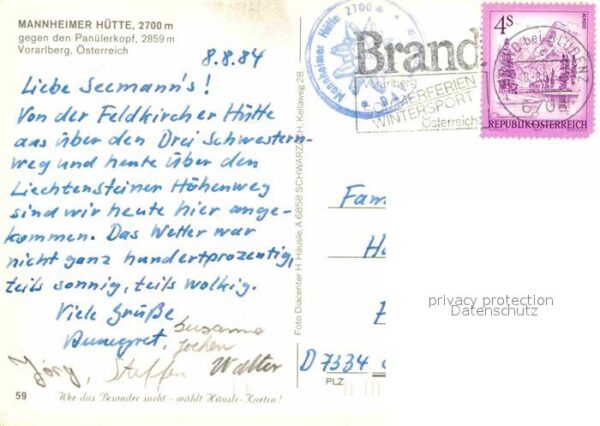 MANNHEIMER HÜTTE, 2700 m
gegen den Panülerkopf, 2859 m
Vorarlberg, Österreich
8.8.84
Liebe Seemann's!
Von der Feldkircher Hütte
aus über den Drei Schwestern-
weg und heute über den
Liechtensteiner Höhenweg
sind wir heute hier ange-
kommen. Das Wetter war
nicht ganz hundertprozentig,
teils sonnig, teils wolkig.
Viele Grüße
Annegret, Susanne
Jochen
Jörg, Steffen Walter
59
Wer das Besondre sucht - wählt Häusle-Karten!
Foto Diacenter H. Häusle, A-6858 SCHWARZACH, Kellaweg 28
Mannheimer Hütte 2700 m
Brand
Vorarlberg
SOMMERFERIEN
WINTERSPORT
Österreich
BRAND bei BLUDENZ
4S
REPUBLIK ÖSTERREICH
Fam
H
D 7334
PLZ
privacy protection
Datenschutz